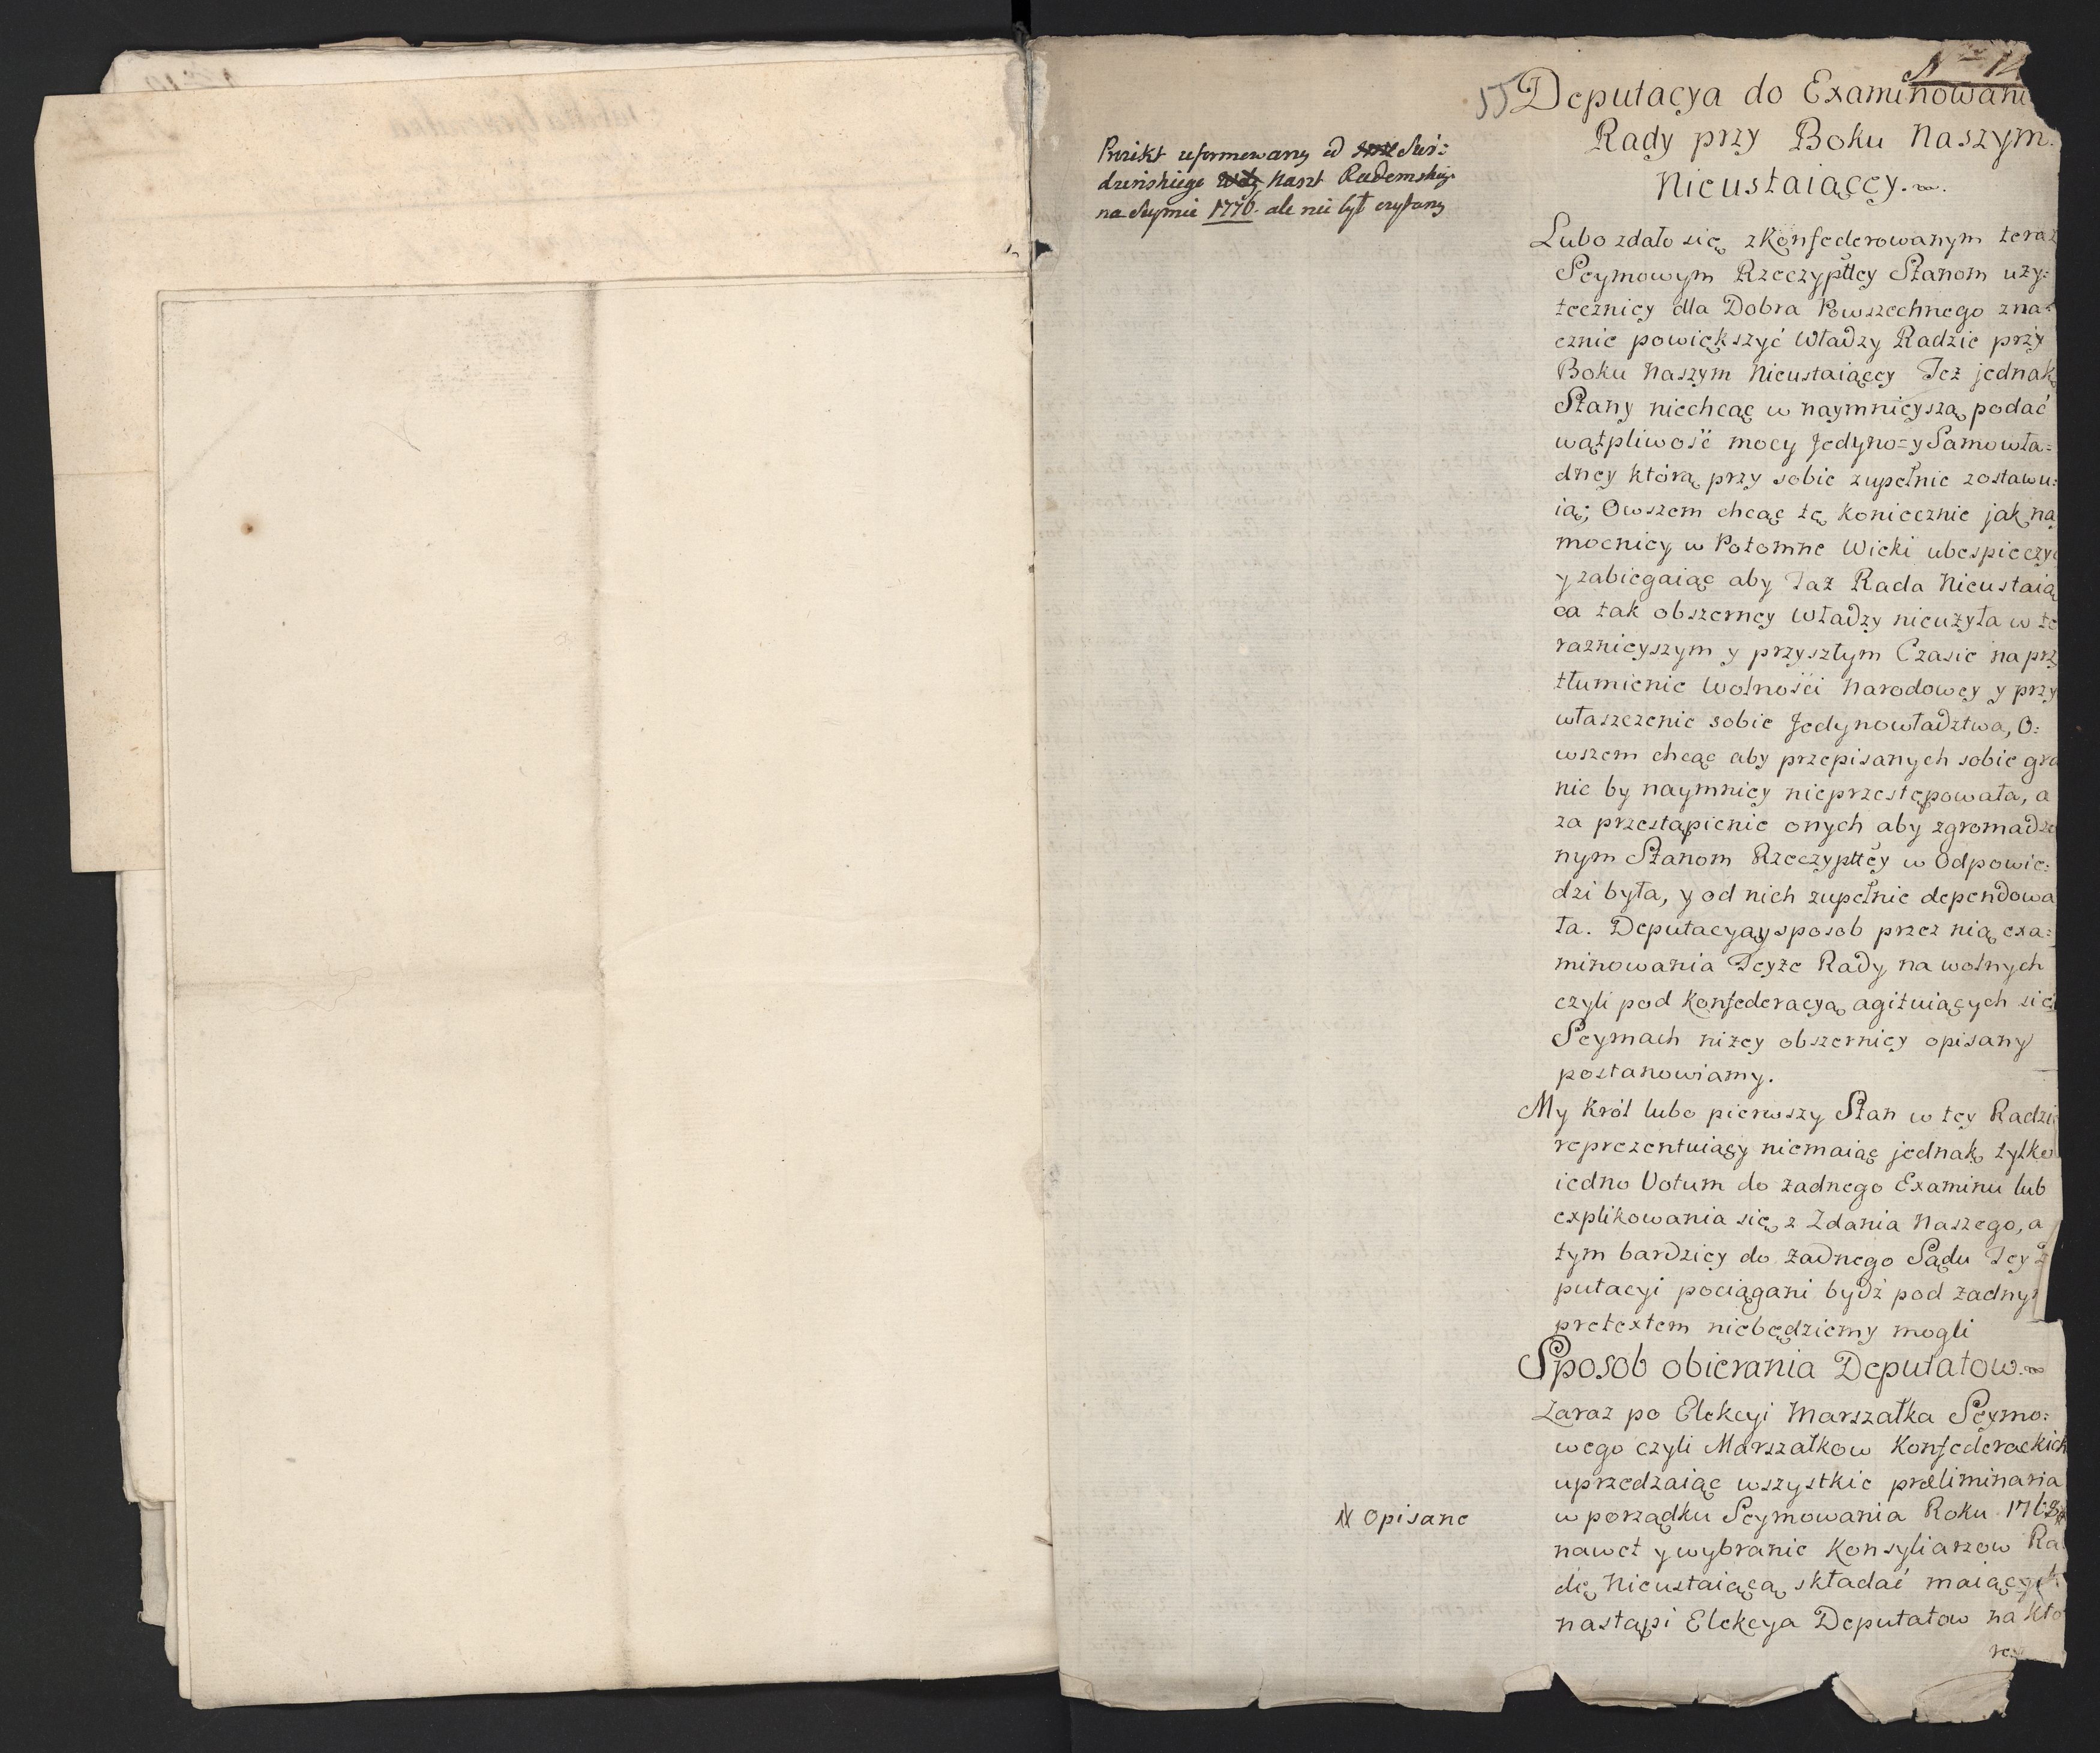 No 14
55
Deputacya do Examinowani
Rady przy Boku Naszym
Nieustaiącey.
Proiekt uformowany od Świ:
dzińskiego Kaszt Radomskiego
na Seymie 1776. ale nie był czytany
Lubo zdało się zKonfederowanym teraz
Seymowym Rzeczypttey Stanom uży:
teczniey dla Dobra Powszechnego zna:
cznie powiększyć Władzy Radzie przy
Boku Naszym Nieustaiącey Też jednak
Stany niechcąc w naymnieyszą podać
wątpliwość mocy Jedyno=y Samowła:
dney którą przy sobie zupełnie zostawu:
ią; Owszem chcąc tę koniecznie jak na
mocniey w Potomne Wieki ubespieczyć
y zabiegaiąc aby Taż Rada Nieustaią
ca tak obszerney Władzy nieużyła w te
raznieyszym y przyszłym Czasie na prz
tłumienie Wolności Narodowey y przy
właszczenie sobie Jedynowładztwa, O:
wszem chcąc aby przepisanych sobie gra
nic by naymniey nieprzestępowała, a
za przestąpienie onych aby zgromadzo
nym Stanom Rzeczypttey w Odpowie:
dzi była, y od nich zupełnie dependowa
ła. Deputacyą y sposob przez nią exa:
minowania Teyże Rady na wolnych
czyli pod Konfederacyą agituiących się
Seymach niżey obszerniey opisany
postanowiamy.
My Król lubo pierwszy Stan w tey Radzie
reprezentuiący niemaiąc jednak tylko
iedno Votum do żadnego Examinu lub
explikowania się z Zdania Naszego, a
tym bardziey do żadnego Sądu Tey
putacyi pociągani bydź pod żadny
pretextem niebędziemy mogli
Sposob obierania Deputatow.
Zaraz po Elekcyi Marszałka Seymo:
wego czyli Marszałkow Konfederackich
uprzedzaiąc wszystkie præliminaria
w porządku Seymowania Roku 1768
# Opisane
nawet y wybranie Konsyliarzow Ra
dę Nieustaiącą składać maiących
nastąpi Elekcya Deputatow na kto
rey